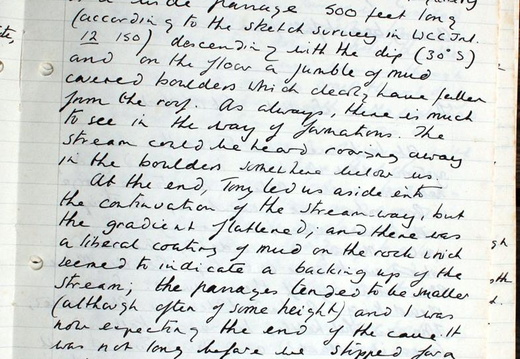 wide passage 500 feet long
(according to the sketch survey in WCC Jnl.
12 150) descending with the dip (30° S)
and on the floor a jumble of mud
covered boulders which clearly have fallen
from the roof. As always, there is much
to see in the way of formations. The
stream could be heard roaring away
in the boulders somewhere below us.
At the end, Tony led us aside into
the continuation of the stream-way, but
the gradient flattened, and there was
a liberal coating of mud on the rock which
seemed to indicate a backing up of the
stream; the passages tended to be smaller
(although often of some height) and I was
now expecting the end of the cave. It
was not long before we stopped for a